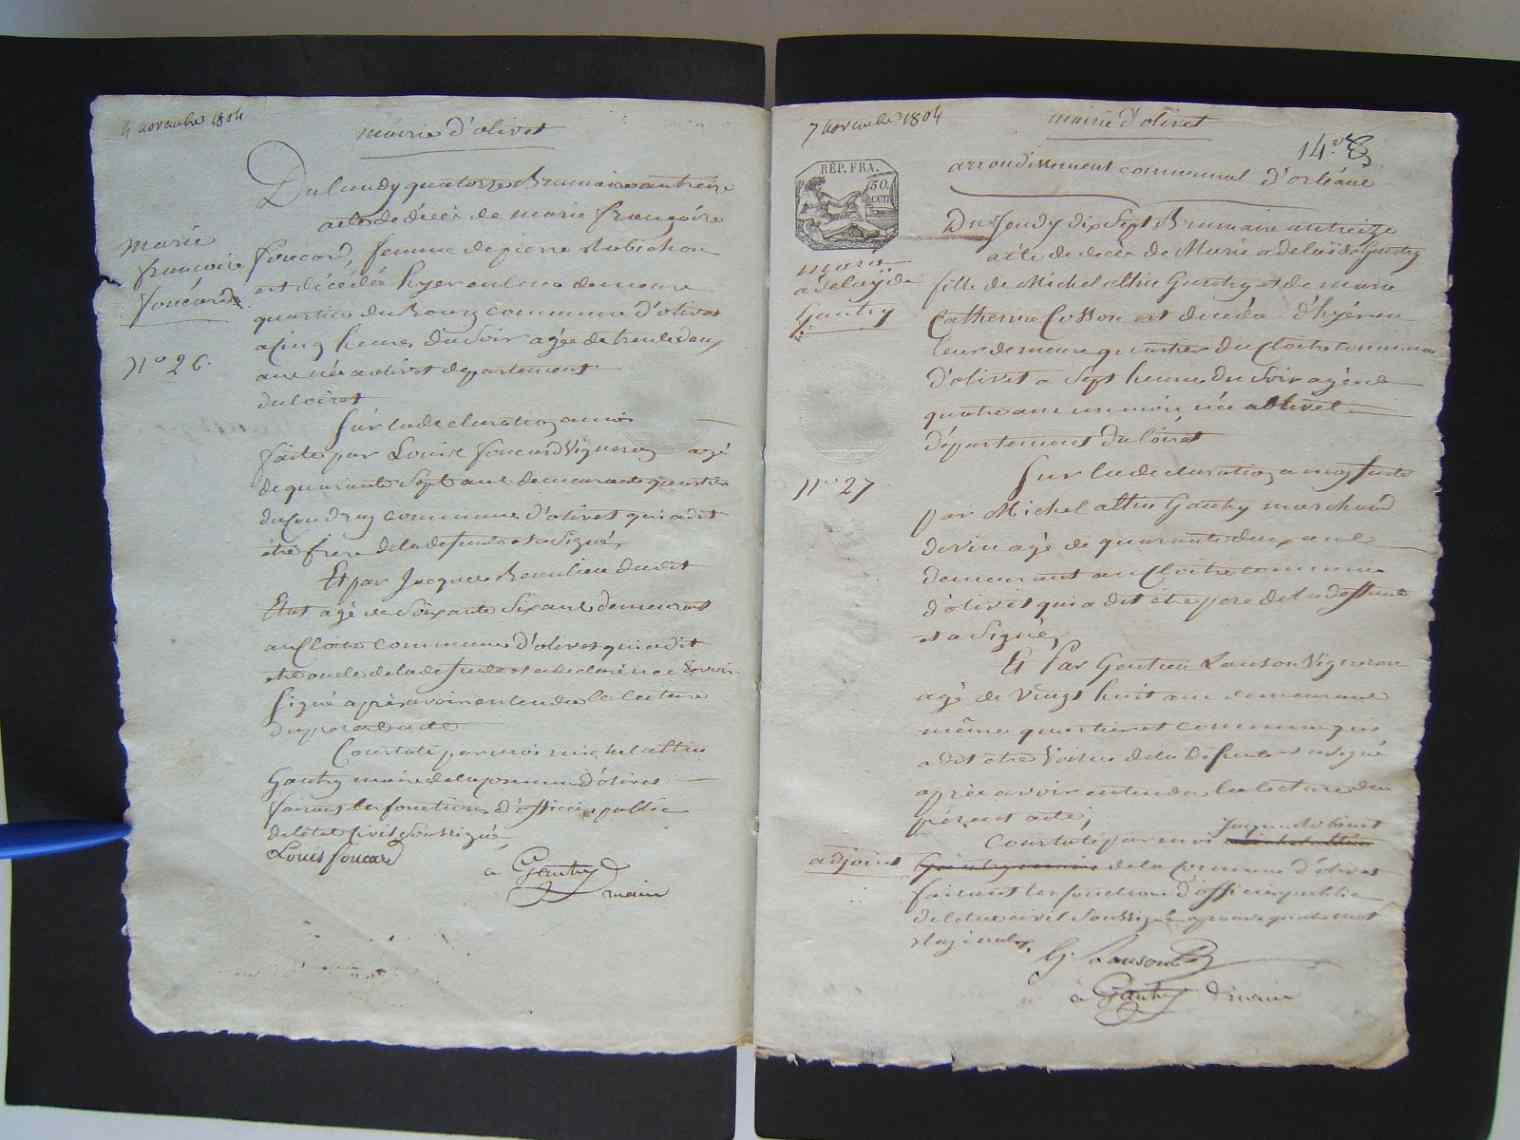 5 novembre 1804
mairie d'olivet
Du lundy quatorze Brumaire an treize
acte de décès de marie françoise
foucard, femme de pierre
est décédée hyer en leur demeure
quartier du Bourg commune d'olivet
a cinq heures du soir agée de trente deux
ans née a olivet departement
du loiret
marie
francoise
foucard
No 26.
Sur la declaration a moi
faite par Louis foucard Vigneron agé
de quarante Sept ans demeurant quartier
du Coudray commune d'olivet qui a dit
être frere de la defunte et a Signé,
Et par Jacques Beaulieu dudit
Etat agé de Soixante Six ans demeurant
au Cloitre commune d'olivet qui a dit
etre oncle de la defunte et a declaré ne Savoir
Signé après avoir entendu la lecture
du present acte
Constaté par moi michel altin
Gautry maire de la commune d'olivet
faisant les fonctions d'officier public
de l'état Civil Soussigné,
Louis foucard
a Gautry
maire
7 novembre 1804
mairie d'olivet
14.e
arrondissement communal d'orléans
REP. FRA.
50.
CEN
Du Jeudy dix Sept Brumaire an treize
acte de decès de Marie adelaïde Gautry
fille de Michel altin Gautry et de marie
Catherine Cosson est décédée d'hyer en
leur demeure quartier du Cloitre commune
d'olivet a Sept heures du Soir agée de
quatre ans un mois, née a olivet
département du loiret
marie
adelayde
Gautry
No 27
Sur la declaration a moy faite
par Michel altin Gautry marchand
de vin agé de quarante deux ans
demeurant au Cloitre commune
d'olivet qui a dit etre pere de la deffunte
et a Signé,
Et Par Gentien Lanson Vigneron
agé de Vingt huit ans demeurant
même quartier et commune qui
a dit être Voisin de la defunte et a signé
après avoir entendu la lecture du
présent acte,
Constaté par moi michel altin
adjoint
Gautry maire de la Commune d'olivet
faisant les fonctions d'officier public
de l'état civil Soussigné approuvé quatre mots
G. Lanson
a Gautry
maire